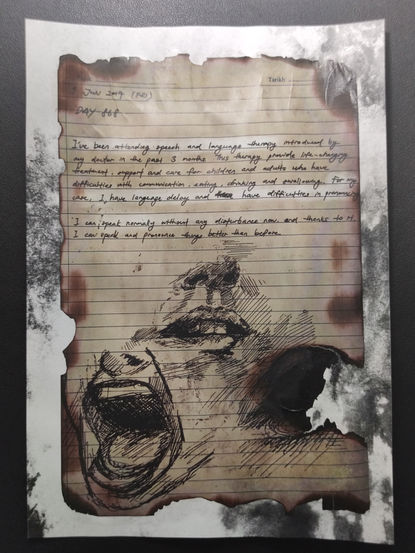 Tarikh
Jun 2019
DAY 868
I've been attending speech and language therapy introduced by
my doctor in the past 3 months. This therapy provide life-changing
treatment, support and care for children and adults who have
difficulties with communication, eating, drinking and swallowing. For my
case, I have language delay and have difficulties in pronouncing
I can speak normally without any disturbance now and thanks to it,
I can speak and pronounce things better than before.